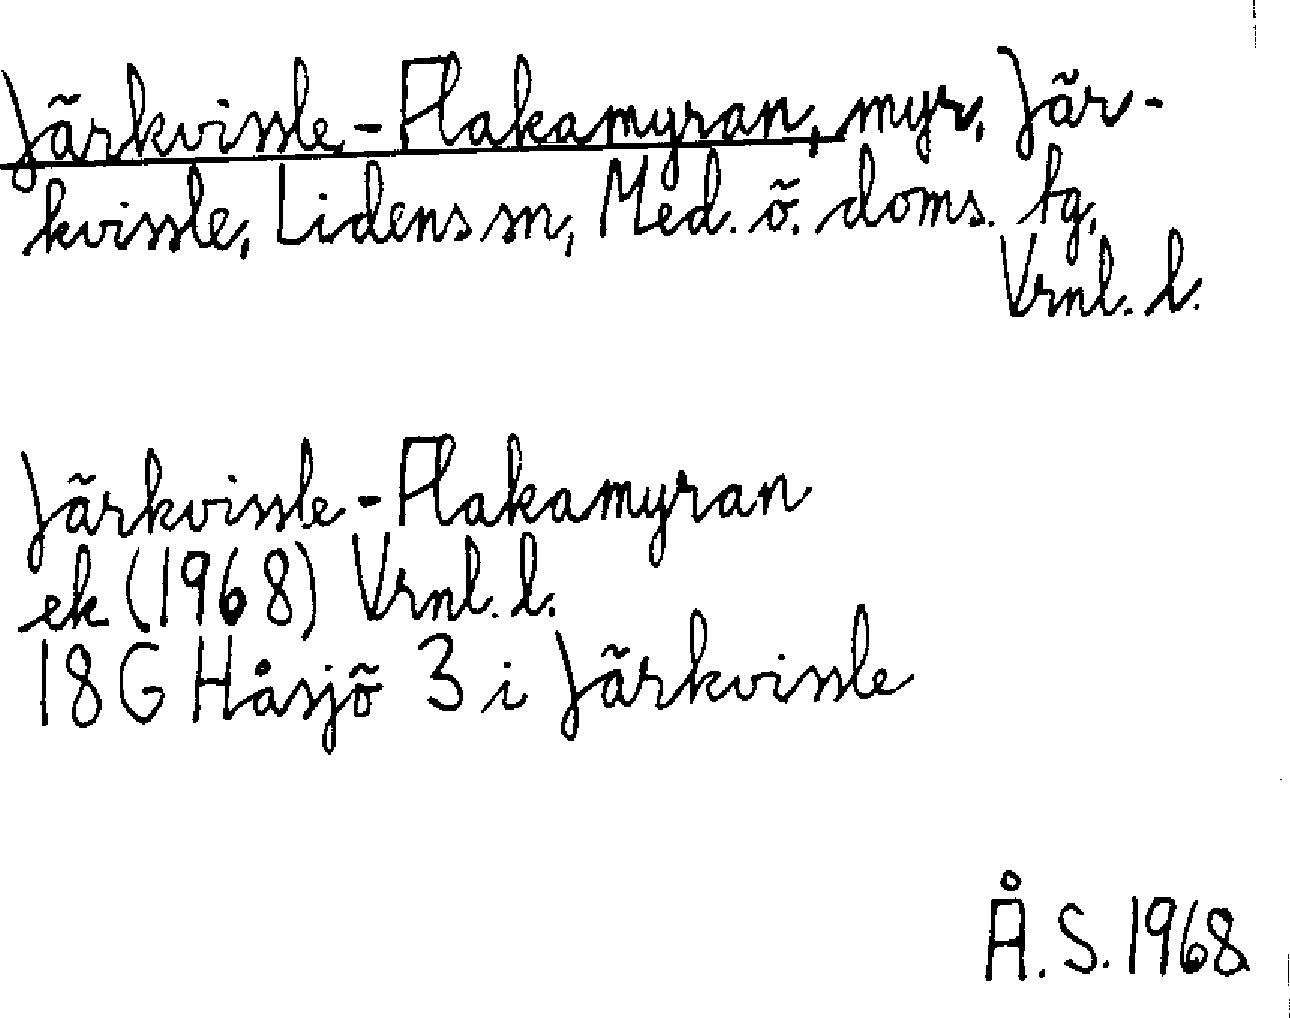 Järkvissle-Flakamyran, myr, Jär-
kvissle, Lidens sn, Med. ö. doms. tg,
Vrnl. l.
Järkvissle-Flakamyran
ek (1968) Vrnl. l.
18G Håsjö 3 i Järkvissle
Å. S. 1968